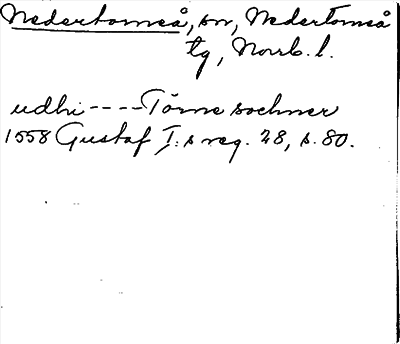 Nedertorneå, sn, Nedertorneå
tg, Norrb. l.
udhi ---- Törne sochner
1558 Gustaf I:s reg. 28, s. 80.